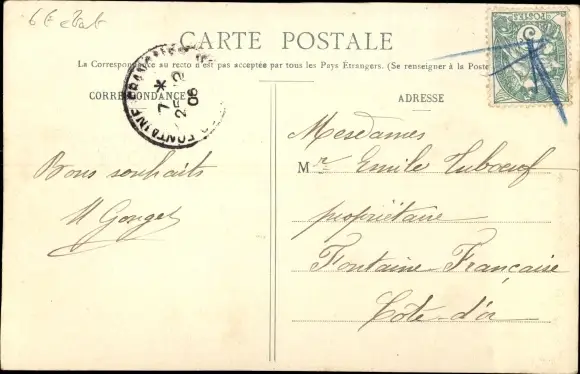 CARTE POSTALE
La Correspondance au recto n'est pas acceptée par tous les Pays Etrangers. (Se renseigner à la Poste
CORRESPONDANCE
ADRESSE
FONTAINE FRANÇAISE
7 *
25 12
06
POSTES
Bons souhaits
Mesdames
M r Emile Tuboeuf
propriétaire
Fontaine-Française
Côte-d'or